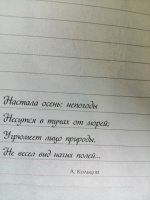 Настала осень: непогоды
Несутся в тучах от морей;
Угрюмеет лицо природы,
Не весел вид нагих полей...
А. Кольцов